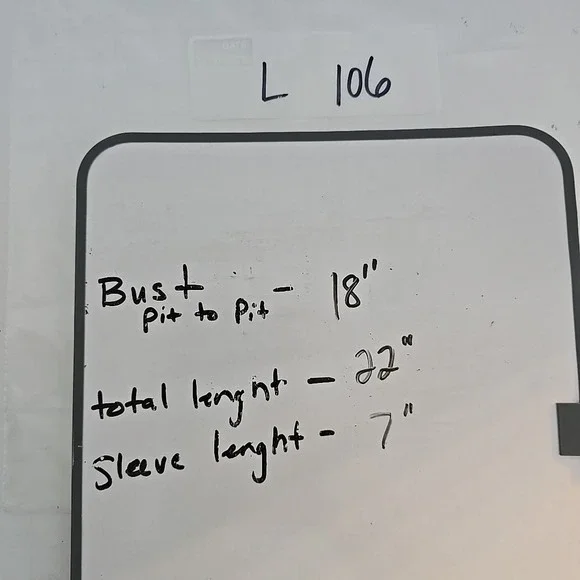 L 106
Bust - 18"
pit to pit
total lenght - 22"
Sleeve lenght - 7"